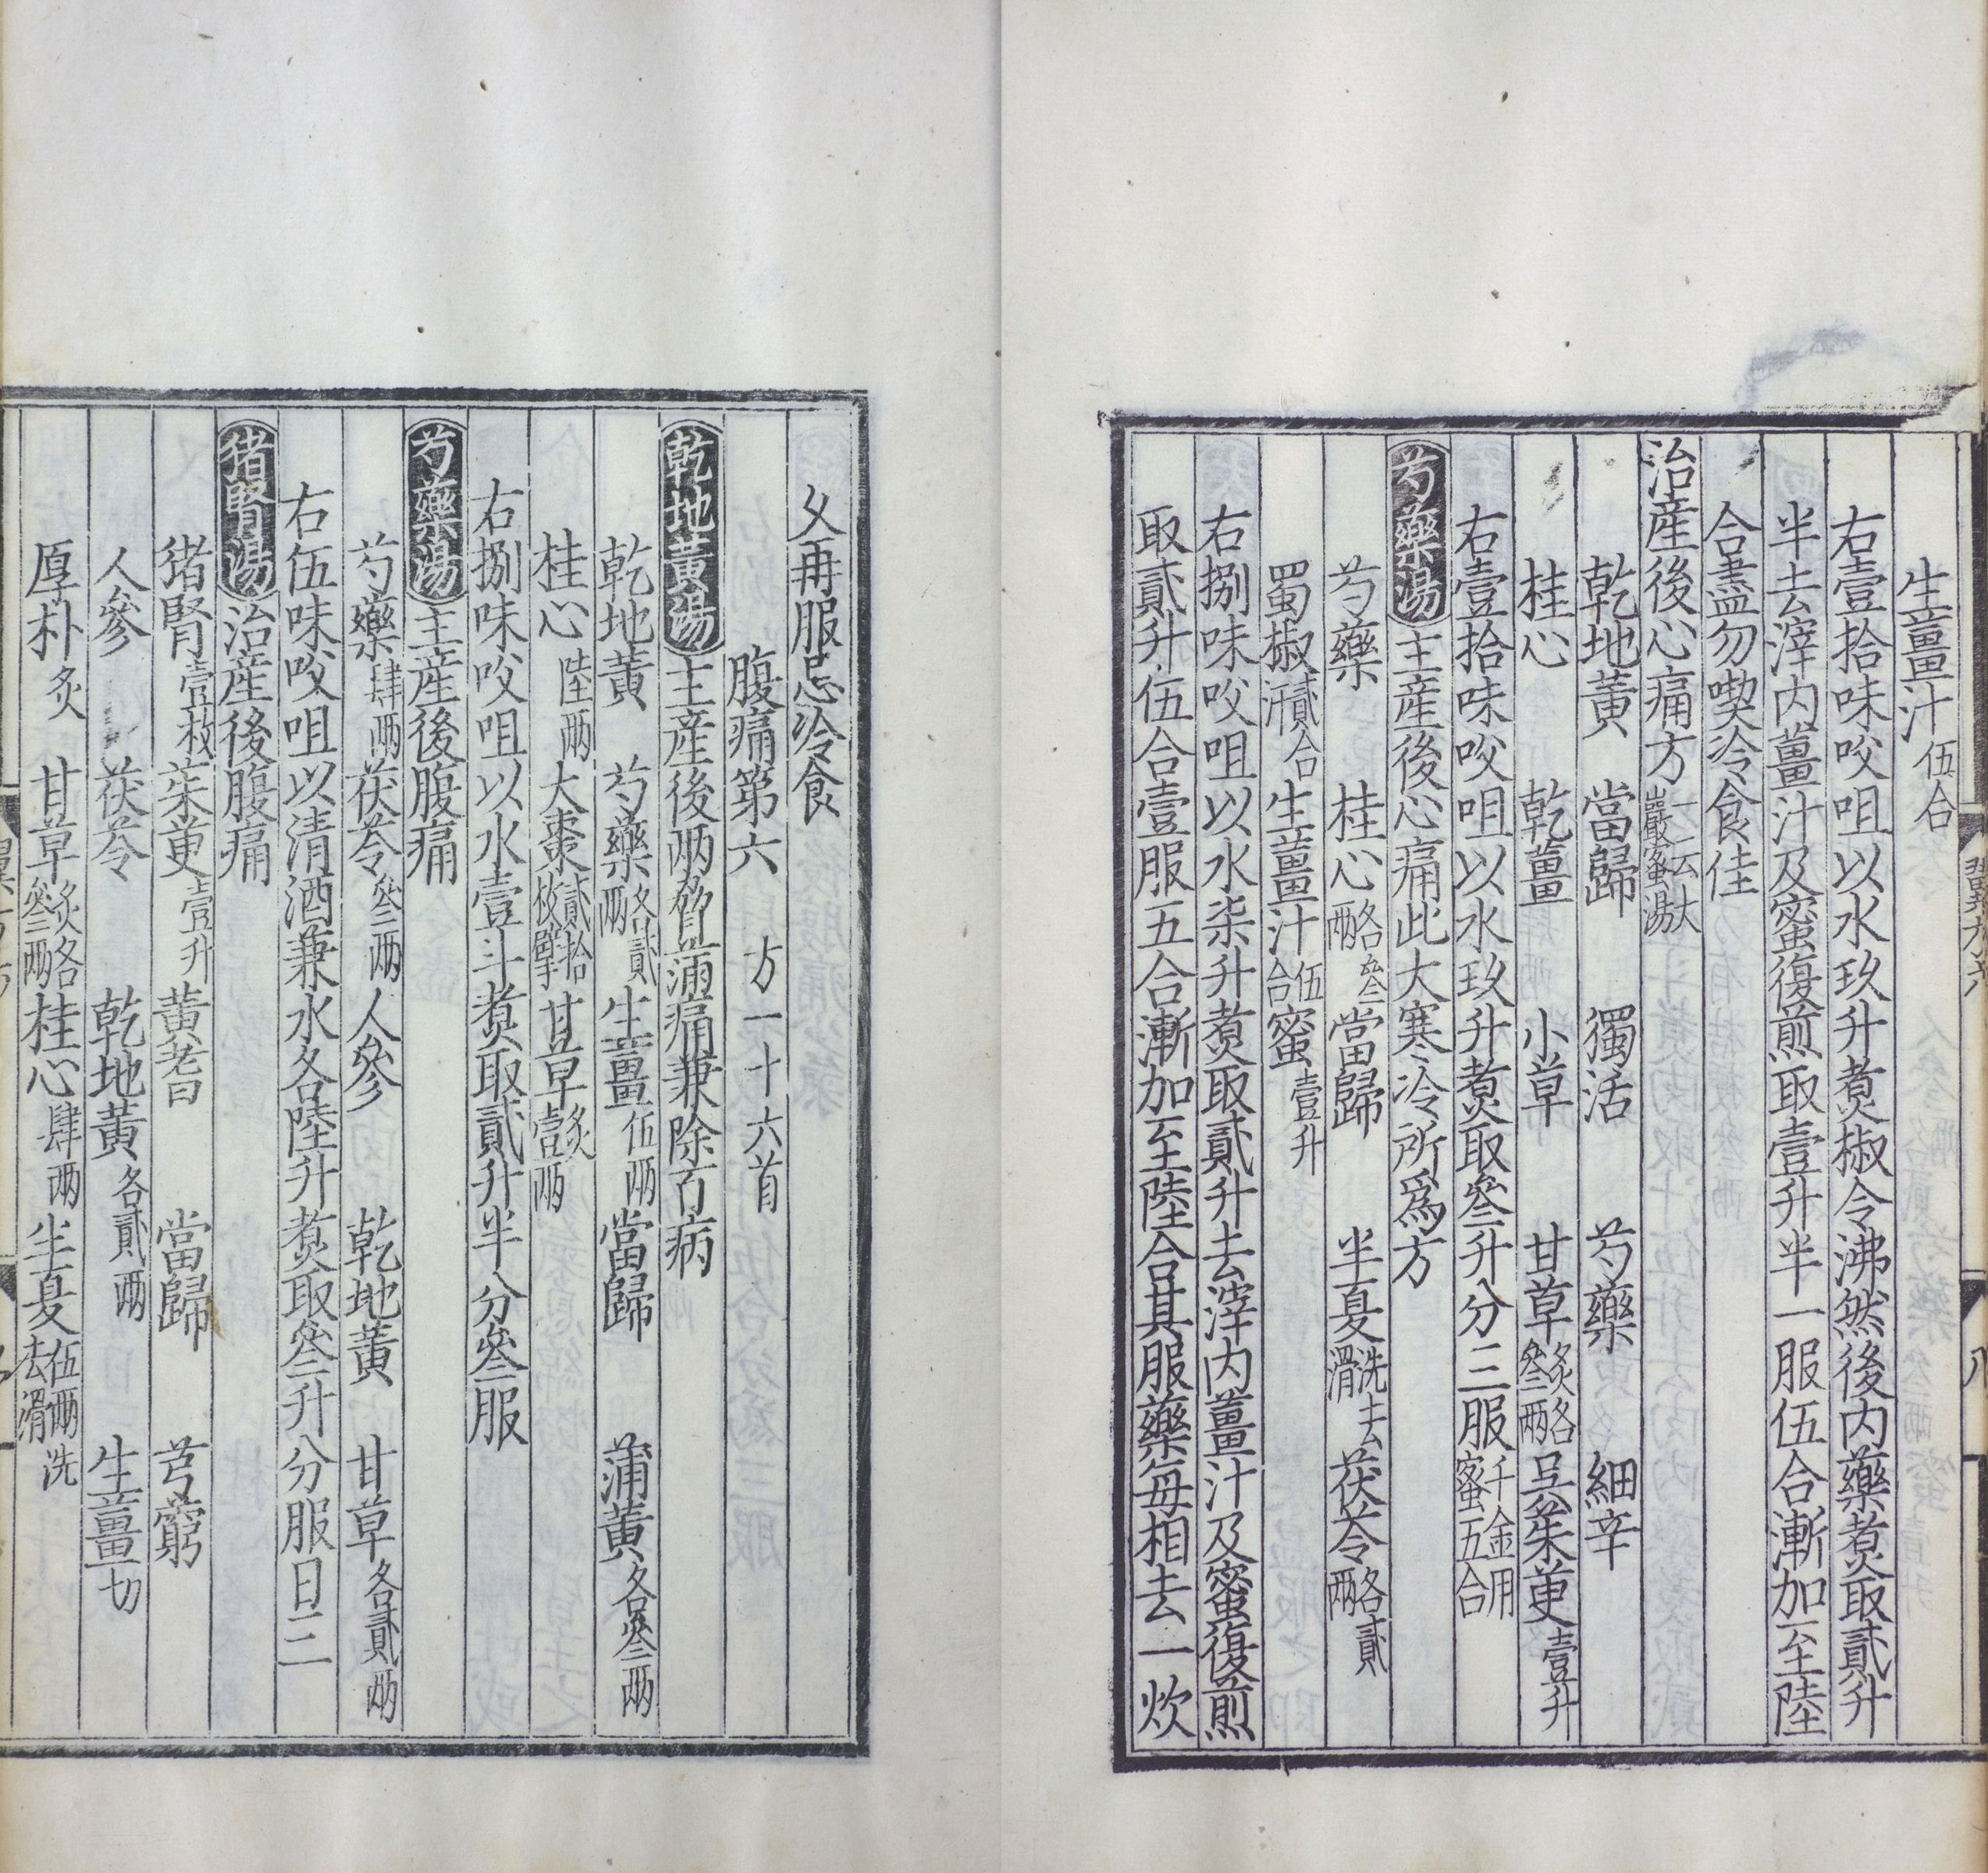 生薑汁伍合
右壹拾味㕮咀以水玖升煑椒令沸然後内藥煑取貳升
半去滓内薑汁及蜜復煎取壹升半一服伍合漸加至陸
合盡勿喫冷食佳
治産後心痛方一云大巖蜜湯
乾地黄　當歸　獨活　芍藥　細辛
桂心　乾薑　小草　甘草炙各叄兩吴茱萸壹升
右壹拾味㕮咀以水玖升煑取叄升分三服千金用蜜五合
芍藥湯主産後心痛此大寒冷所爲方
芍藥　桂心各叄兩　當歸　半夏洗去滑茯苓各貳兩
蜀椒貳合汗生薑汁伍合蜜壹升
右捌味㕮咀以水柒升煑取貳升去滓内薑汁及蜜復煎
取貳升伍合壹服五合漸加至陸合其服藥每相去一炊
久再服忌冷食
腹痛第六　方一十六首
乾地黄湯主産後兩脅滿痛兼除百病
乾地黄　芍藥各貳兩　生薑伍兩當歸　蒲黄各叄兩
桂心陸兩大棗貳拾枚擘甘草炙壹兩
右捌味㕮咀以水壹斗煑取貳升半分叄服
芍藥湯主産後腹痛
芍藥肆兩茯苓叄兩人參　乾地黄　甘草各貳兩
右伍味㕮咀以清酒兼水各陸升煑取叄升分服日二
猪腎湯治産後腹痛
猪腎壹枚茱萸壹升黄耆　當歸　芎藭
人參　茯苓　乾地黄各貳兩　生薑切
厚朴炙　甘草炙各叄兩桂心肆兩半夏伍兩洗去滑
八